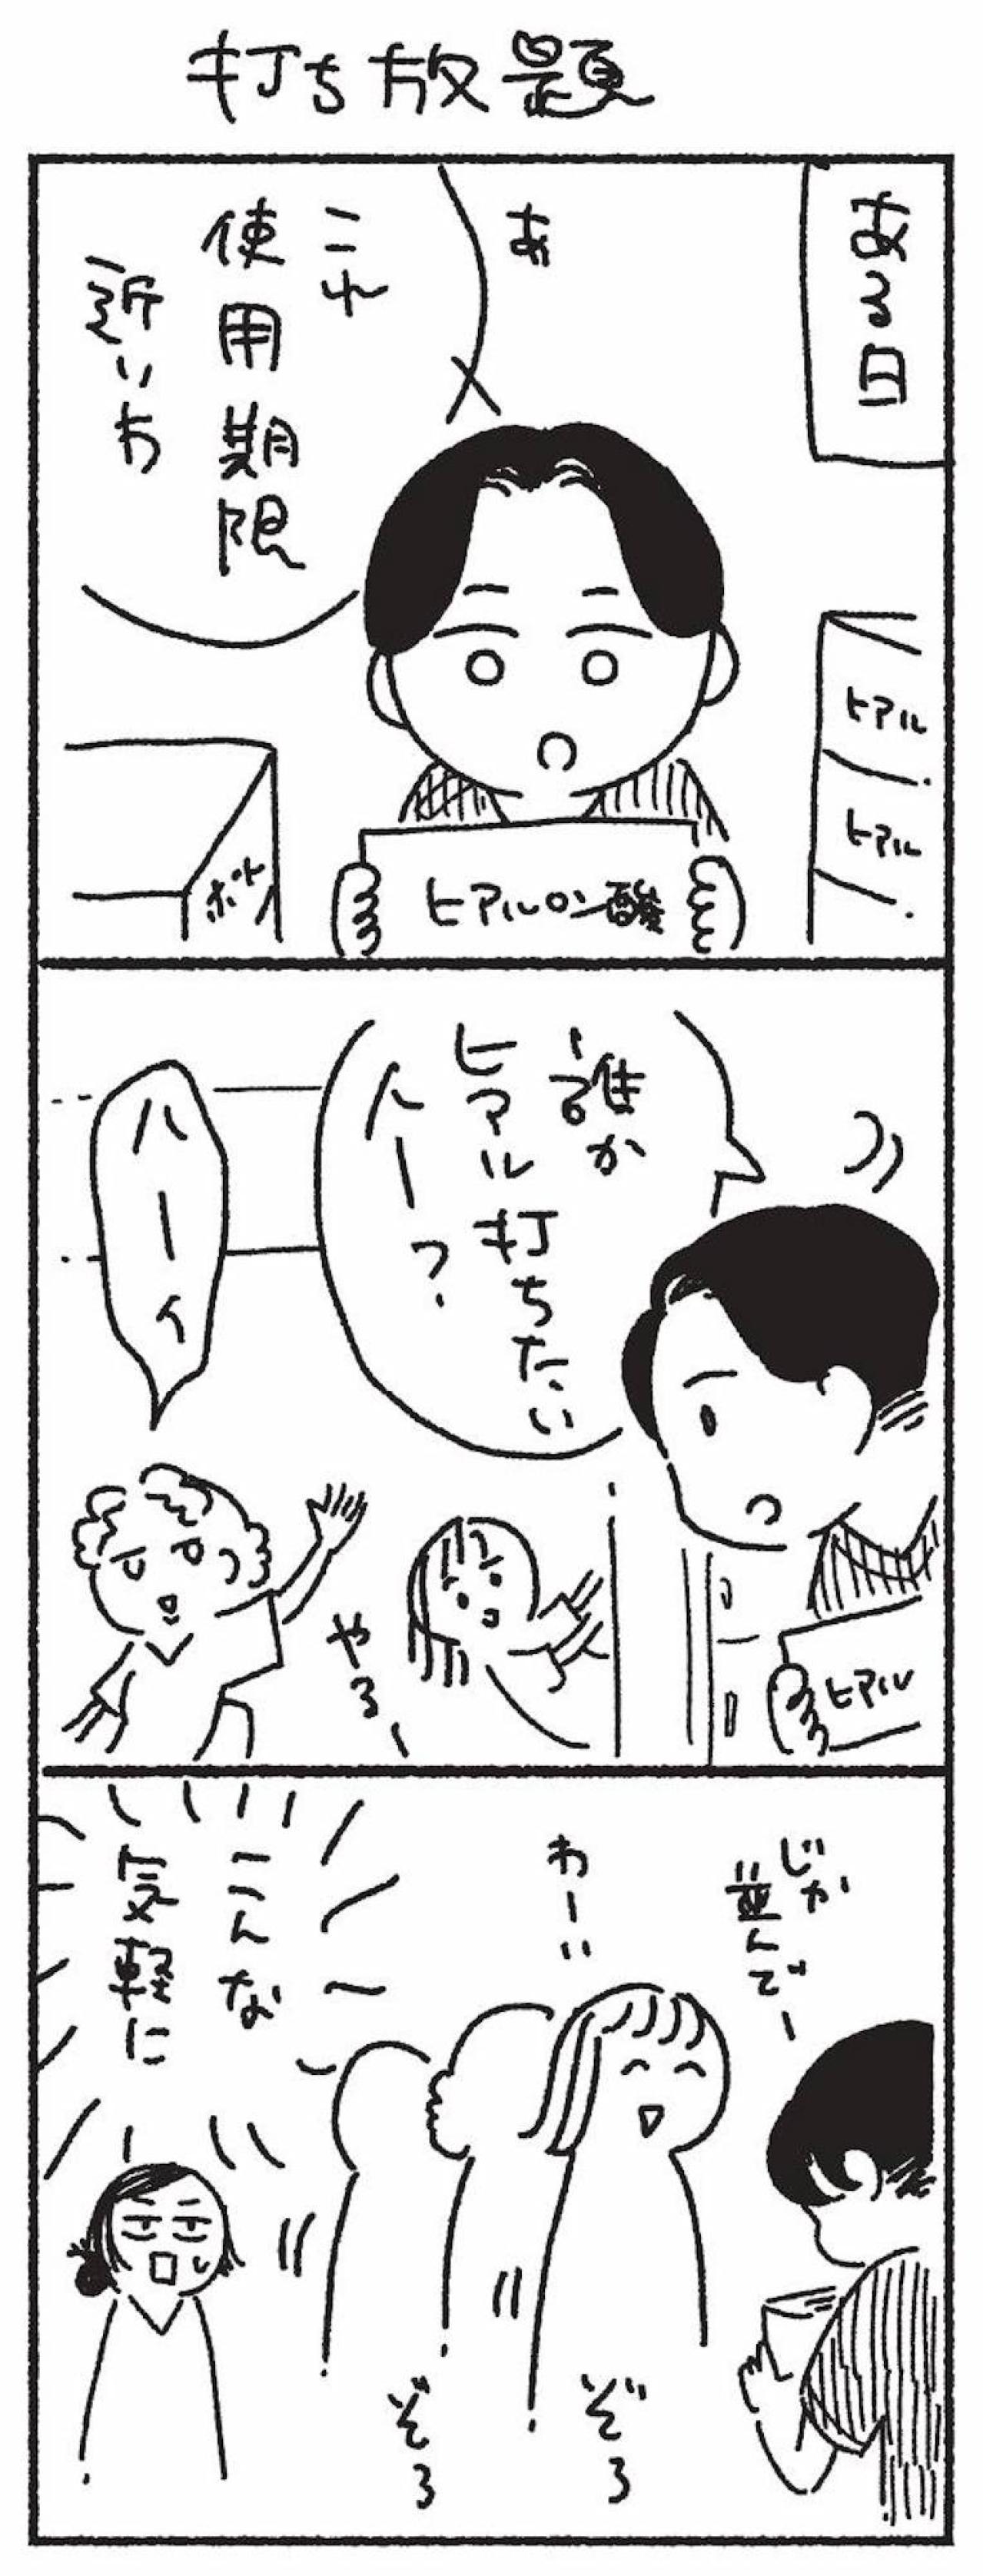 打ち放題
ある日
あ
これ
使用期限
近いわ
ヒアル
ヒアル
ヒアルロン酸
ボト
誰か
ヒアル打ちたい
人ー?
ハーイ
やるー
ヒアル
じゃ
並んでー
わーい
こんな
気軽に
ぞろ
ぞろ